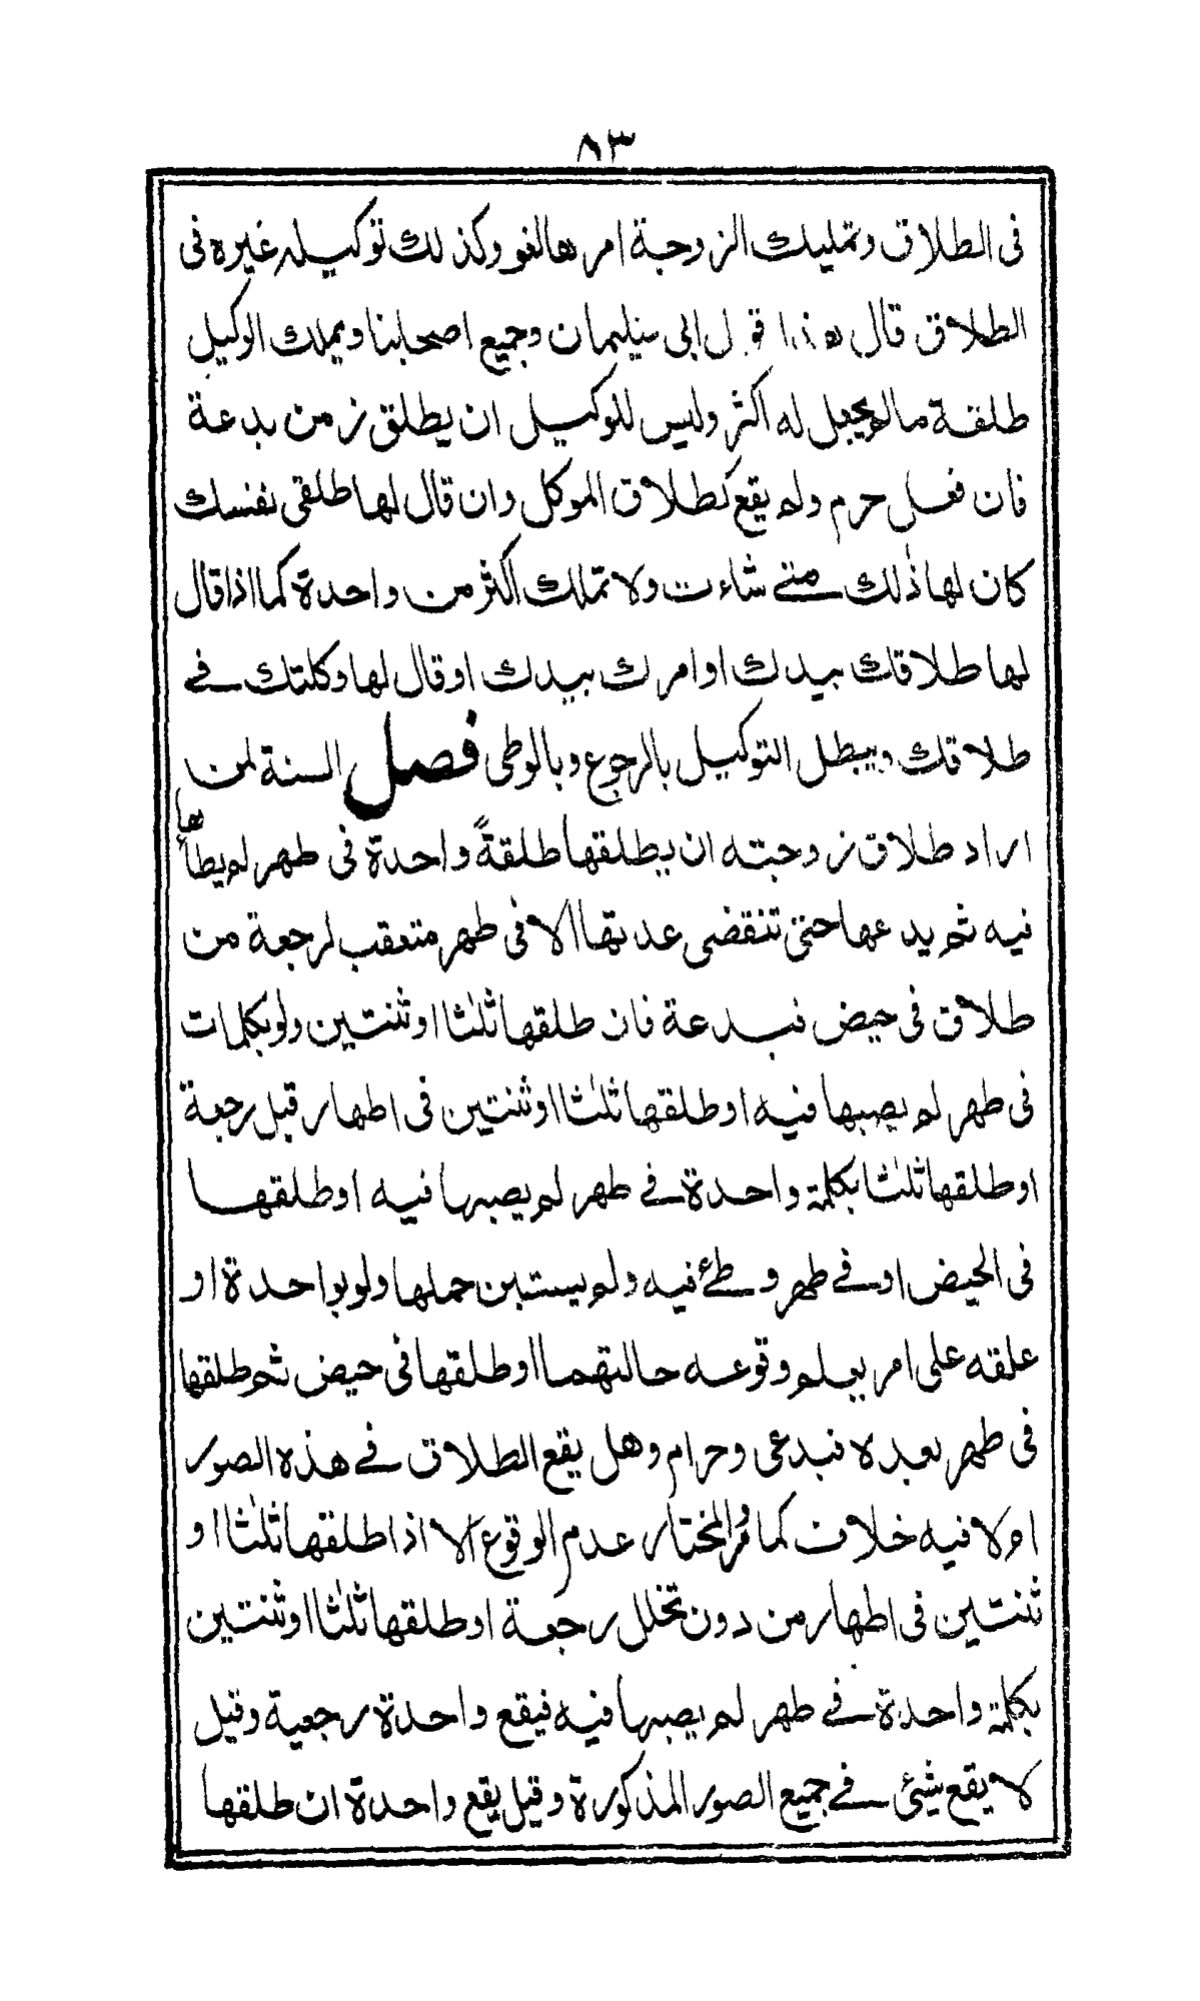 ٨٣
فى الطلاق وتمليك الزوجة امرها لغو وكذلك توكيله غيره فى
الطلاق قال هذا قول ابى سليمان وجميع اصحابنا ويملك الوكيل
طلقة مالم يجعل له اكثر وليس للوكيل ان يطلق زمن بدعة
فان فعل حرم ولم يقع كطلاق الموكل وان قال لها طلقى نفسك
كان لها ذلك متے شاءت ولا تملك اكثر من واحدة كما اذا قال
لها طلاقك بيدك او امرك بيدك او قال لها وكلتك فے
طلاقك ويبطل التوكيل بالرجوع وبالوطى فصل السنة لمن
اراد طلاق زوجته ان يطلقها طلقةً واحدة فى طهر لم يطأها
فيه ثم يدعها حتى تنقضى عدتها الا فى طهر متعقب لرجعة من
طلاق فى حيض فبدعة فان طلقها ثلٰثا او ثنتين ولو بكلمات
فى طهر لم يصبها فيه او طلقها ثلٰثا او ثنتين فى اطهار قبل رجعة
او طلقها ثلٰثا بكلمة واحدة فے طهر لم يصبها فيه او طلقها
فى الحيض او فے طهر وطئے فيه ولم يستبن حملها ولو بواحدة او
علقه على امر يعلم وقوعه حالتهما او طلقها فى حيض ثم طلقها
فى طهر بعده فبدعى وحرام وهل يقع الطلاق فے هذه الصور
ام لا فيه خلاف كما مُر المختار عدم الوقوع الا اذا طلقها ثلٰثا او
ثنتين فى اطهار من دون تخلل رجعة او طلقها ثلٰثا او ثنتين
بكلمة واحدة فے طهر لم يصبها فيه فيقع واحدة رجعية وقيل
لا يقع شيئ فے جميع الصور المذكورة وقيل يقع واحدة ان طلقها